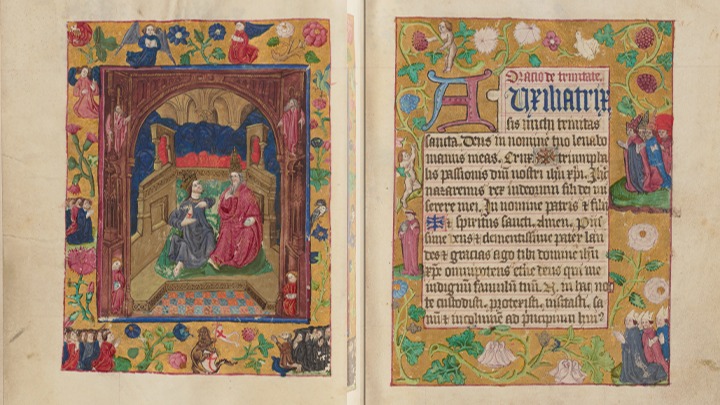 Oratio de trinitate.
Auxiliatrix
sis michi trinitas
sancta. Deus in nomine tuo levabo
manus meas. Crux triumpha
lis passionis dni nostri ihu xpi. Ihc
nazarenus rex iudeorum fili dei mi
serere mei. In nomine patris & filii
& spiritus sancti. Amen. Piis
sime deus & clementissime pater lau
des & gracias ago tibi domine ihu
xpe omnipotens eterne deus qui me
indignum famulum tuum. N. in hac noc
te custodisti. protexisti. visitasti. sa
num & incolumem ad principium huius